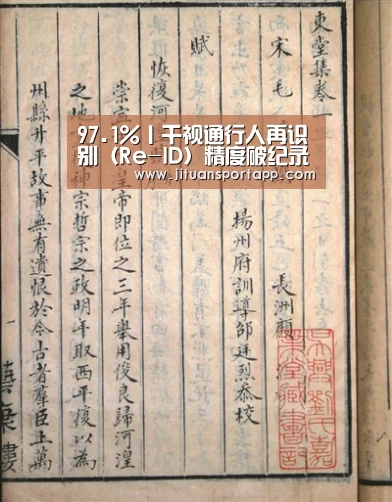 97.1%丨千视通行人再识
别（Re-ID）精度破纪录
www.jituansportapp.com
東堂集卷一
宋 毛 長洲顧
揚州府訓導邵廷烈恭校
賦
恢復河
崇寧皇帝即位之三年舉用俊良歸河湟
之地神宗哲宗之政明年取西平復以為
州縣升平故事無有遺恨於今古者羣臣上萬
一
藝海樓
吳興劉氏嘉
業堂藏書記